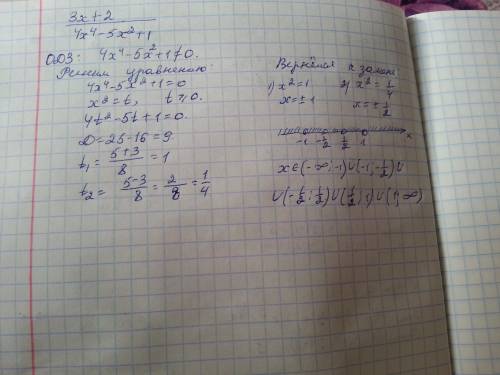 3x+2
4x⁴-5x²+1
ОДЗ: 4x⁴-5x²+1≠0.
Решим уравнение:
4x⁴-5x²+1=0
x²=t, t≥0.
4t²-5t+1=0.
D=25-16=9
t₁=(5+3)/8=1
t₂=(5-3)/8=2/8=1/4
Вернёмся к замене
1) x²=1 2) x²=1/4
x=±1 x=±1/2
-1 -1/2 1/2 1 x
x∈(-∞;-1)∪(-1;-1/2)∪
∪(-1/2;1/2)∪(1/2;1)∪(1;∞)